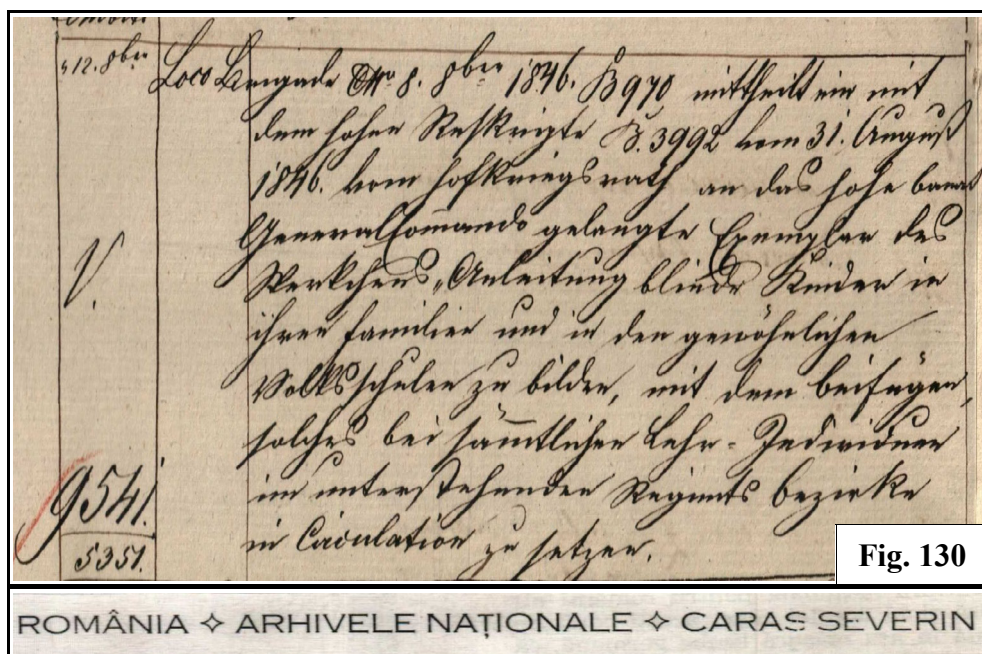 12. 8ber
Loco Brigade No. 8. 8ber 1846. B 970 mittheilt ein mit
dem hohen Reskripte B. 3992 vom 31. August
1846. vom Hofkriegsrath an das hohe banat
General Comando gelangte Exemplar des
Werkchens, „Anleitung blinde Kinder in
ihren Familien und in den gewöhnlichen
V.
Volksschulen zu bilden, mit dem beifügen,
solches bei sämtlichen Lehr-Individuen
im unterstehenden Regimts bezirke
in Circulation zu setzen.
9541.
5351.
Fig. 130
ROMÂNIA ✧ ARHIVELE NAȚIONALE ✧ CARAS SEVERIN